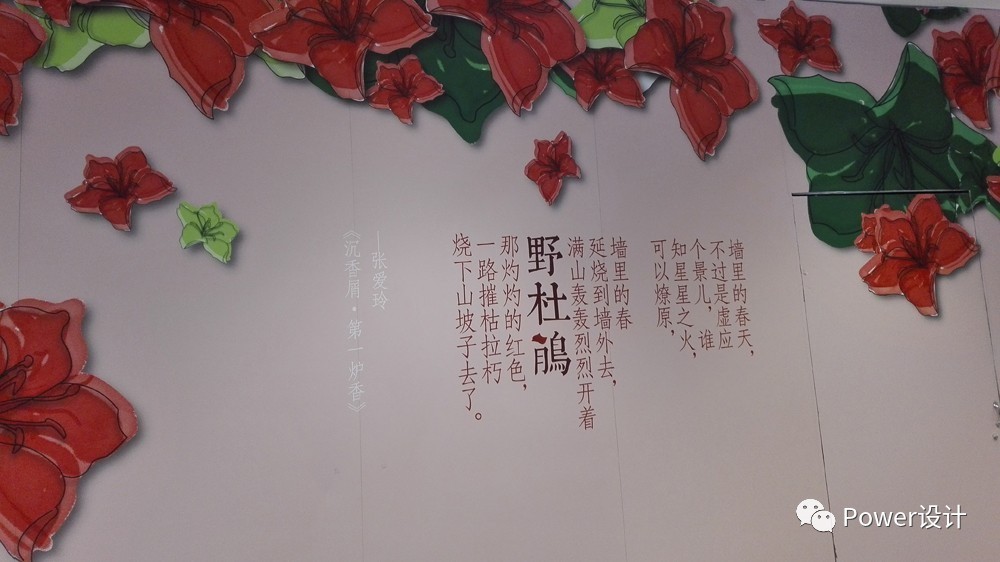 墙里的春天，
不过是虚应
个景儿，谁
知星星之火，
可以燎原，
墙里的春
延烧到墙外去，
满山轰轰烈烈开着
野杜鹃
那灼灼的红色，
一路摧枯拉朽
烧下山坡子去了。
—张爱玲
《沉香屑·第一炉香》
Power设计